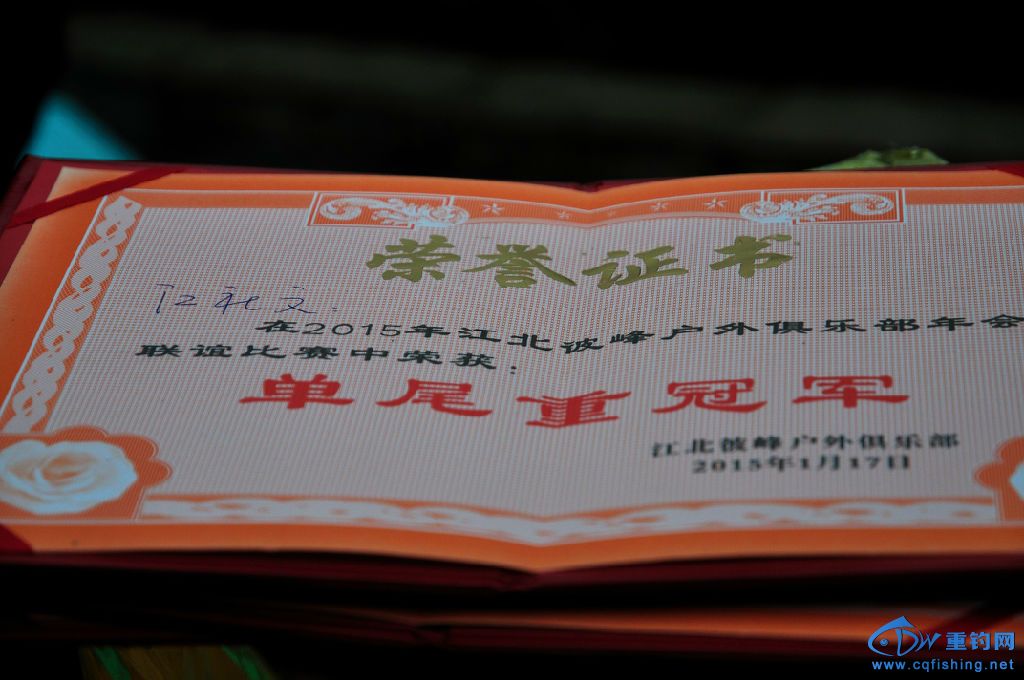 荣誉证书
江礼文:
在2015年江北彼峰户外俱乐部年会
联谊比赛中荣获:
单尾重冠军
江北彼峰户外俱乐部
2015年1月17日
DW 重钓网
www.cqfishing.net